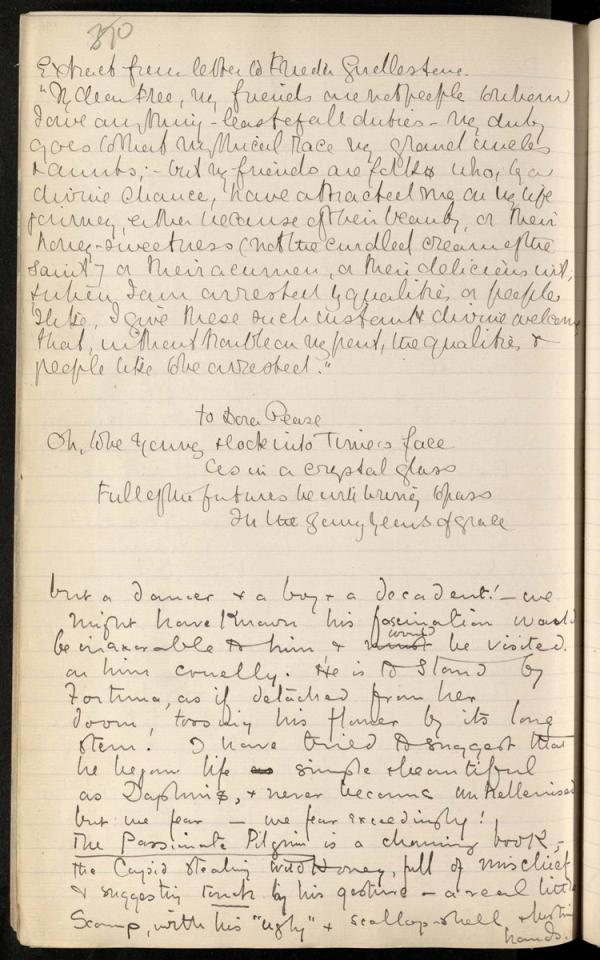 370
Extract from letter to Trudie Girdlestone.
"My dear Tree, my friends are not people to whom
I owe anything - least of all duties - my duty
goes to that mythical race my grand uncles
& aunts; - but my friends are folks who, by a
divine chance, have attracted me on my life
journey, either because of their beauty, or their
honey-sweetness (not the curdled cream of the
saint) or their acumen, or their delicious wit;
& when I am arrested by qualities, or people
I like, I give these such instant & divine welcome
that, without trouble on my part, the qualities &
people like to be arrested."
to Dora Pease
Oh, to be young & look into Time's face
As in a crystal glass
Full of the futures he will bring to pass
In the years of grace
but a dancer & a boy & a decadent! - we
might have known his fascination would
be inexorable to him & would be visited
on him cruelly. He is to stand by
Fortuna, as if detached from her
doom, tossing his flower by its long
stem. I have tried to suggest that
he began life as simple & beautiful
as Daphnis, & never became unhellenised
but we fear - we fear exceedingly!
The Passionate Pilgrim is a charming book, -
the Cupid stealing wild Honey, full of mischief
& suggesting by his gesture - a real little
Scamp, with his "ugly" & scallop-shell &
hands.